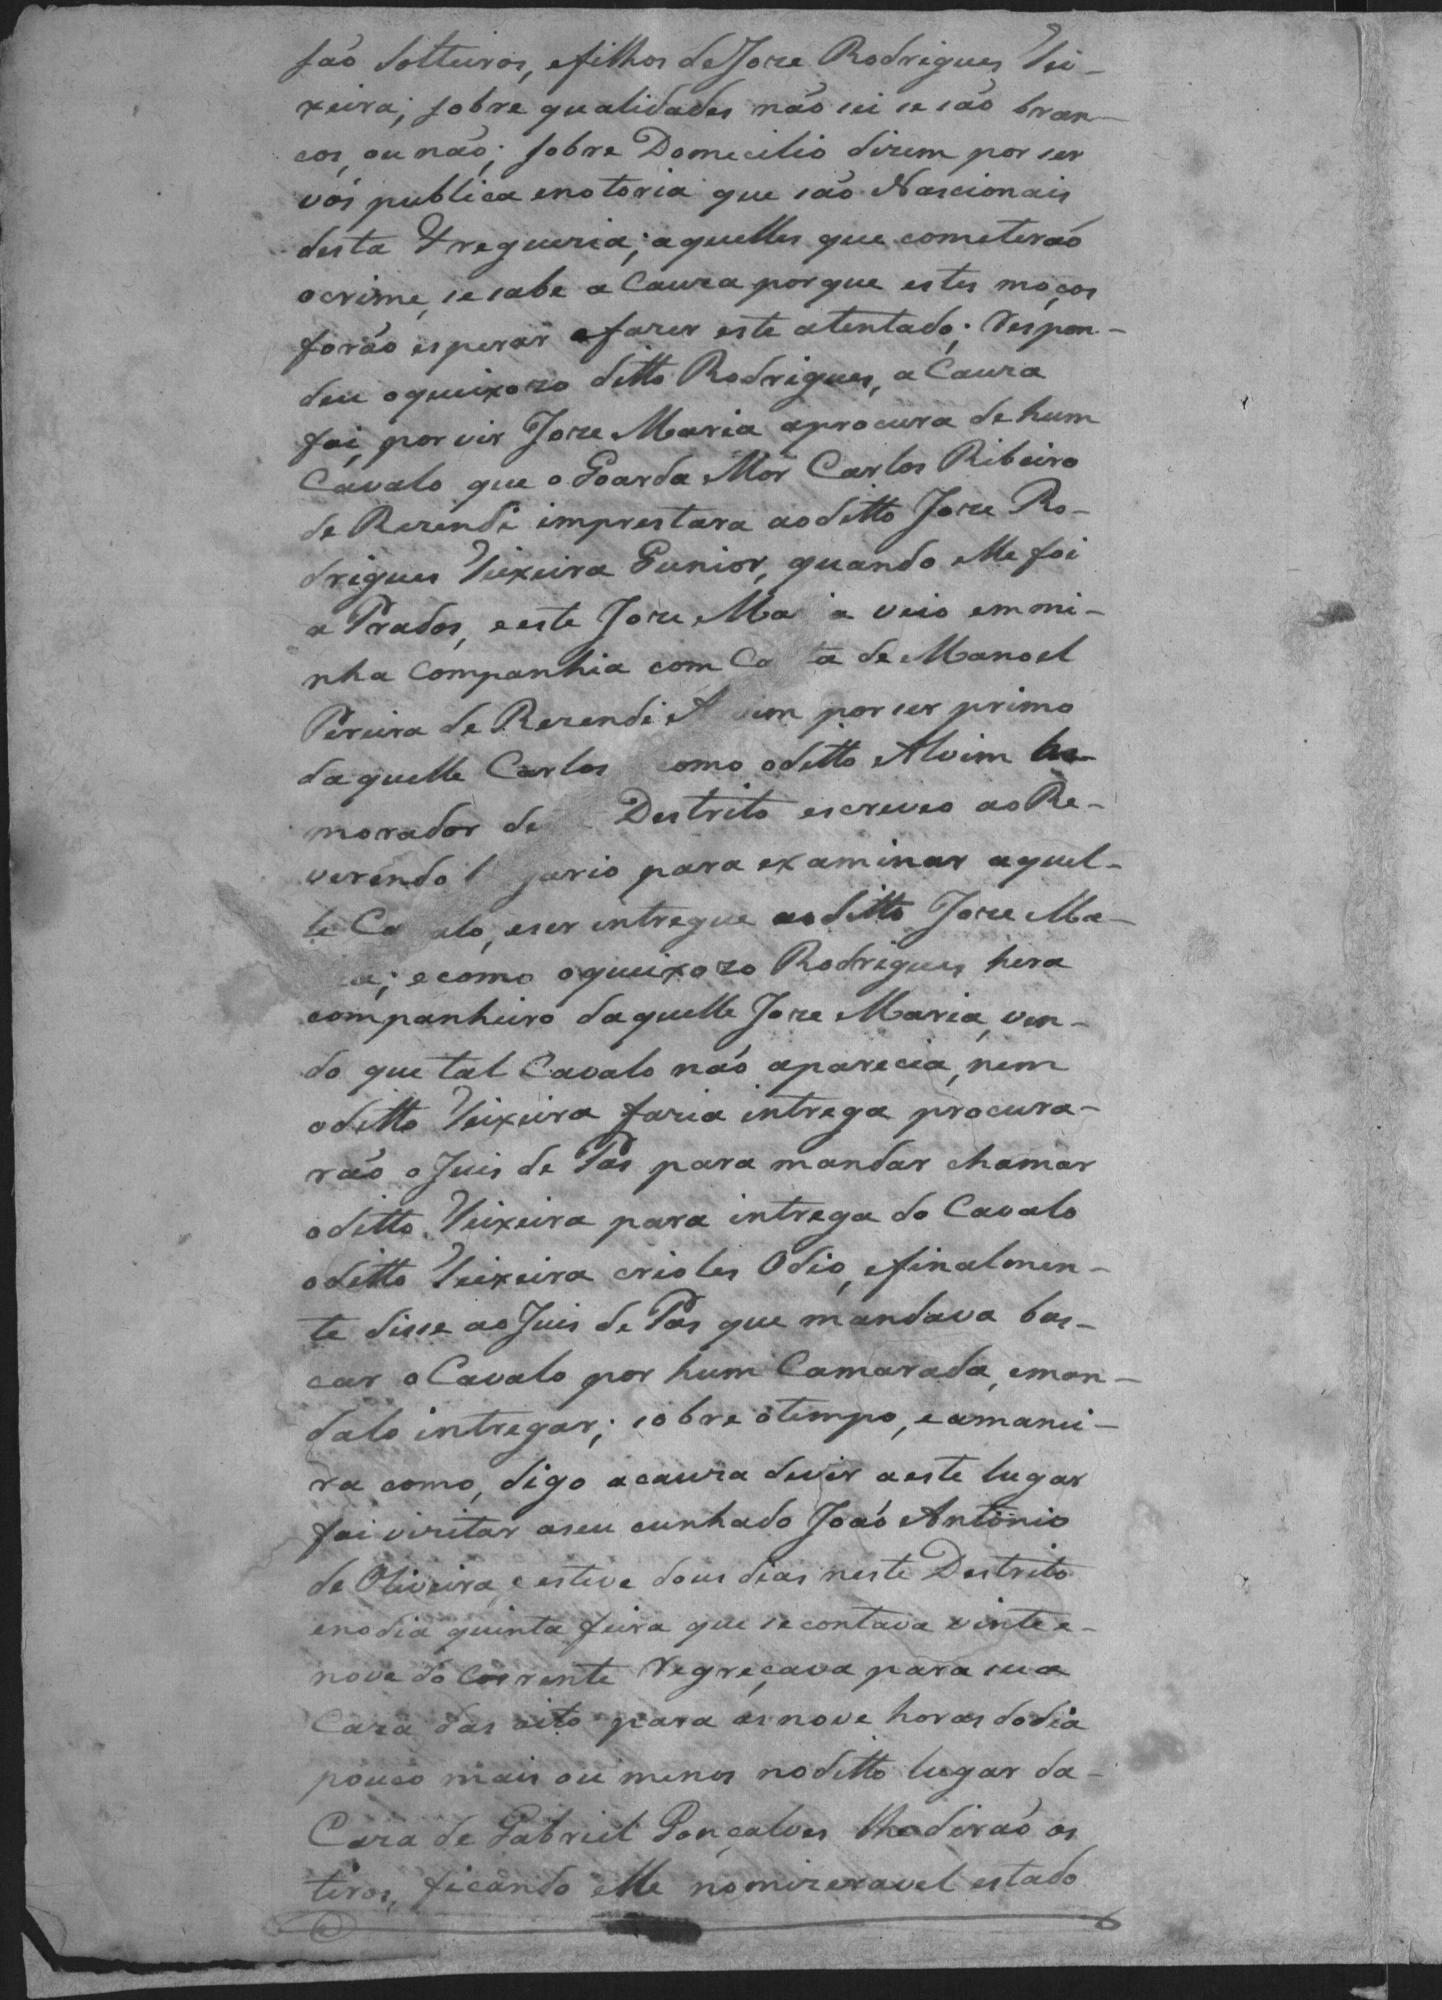 são Solteiros, efilhos de Joze Rodrigues Tei-
xeira; sobre qualidades não sei se são bran-
cos, ou não; sobre Domecilio dizem por ser
vós publica enotoria que são Nascionais
desta Freguezia; aquelles que cometerão
ocrime, se sabe a Cauza porque estes moços
forão esperar efazer este atentado; Respon-
deu oqueixozo ditto Rodrigues, a Cauza
foi, por vir Joze Maria aprocura de hum
Cavalo que o Goarda Mor Carlos Ribeiro
de Rezende imprestara aoditto Joze Ro-
drigues Teixeira Gunior, quando elle foi
a Prados, eeste Joze Ma a veio emmi-
nha Companhia com Ca ta de Manoel
Pereira de Rezende A vim por ser primo
daquelle Carlos como oditto Alvim he
morador de Destrito escreveo ao Re-
verendo gario para examinar aquel-
le Ca alo, eser intregue aoditto Joze Ma-
ia; ecomo oqueixozo Rodrigues hera
companheiro daquelle Joze Maria, ven-
do que tal Cavalo não aparecia, nem
oditto Teixeira fazia intrega procura-
rão o Juis de Pas para mandar chamar
oditto Teixeira para intrega do Cavalo
oditto Teixeira crioles Odio, efinalmen-
te disse ao Juis de Pas que mandava bus-
car o Cavalo por hum Camarada, eman-
dalo intregar; sobre otempo, eamanei-
ra como, digo acauza devir aeste lugar
foi vizitar aseu cunhado João Antonio
de Oliveira, eesteve dous dias neste Destrito
enodia quinta feira que se contava vinte e-
nove do Corrente Regreçava para sua
Caza das oito para as nove horas dodia
pouco mais ou menos noditto lugar da-
Caza de Gabriel Gonçalves lhe derão os
tiros, ficando elle nomizeravel estado